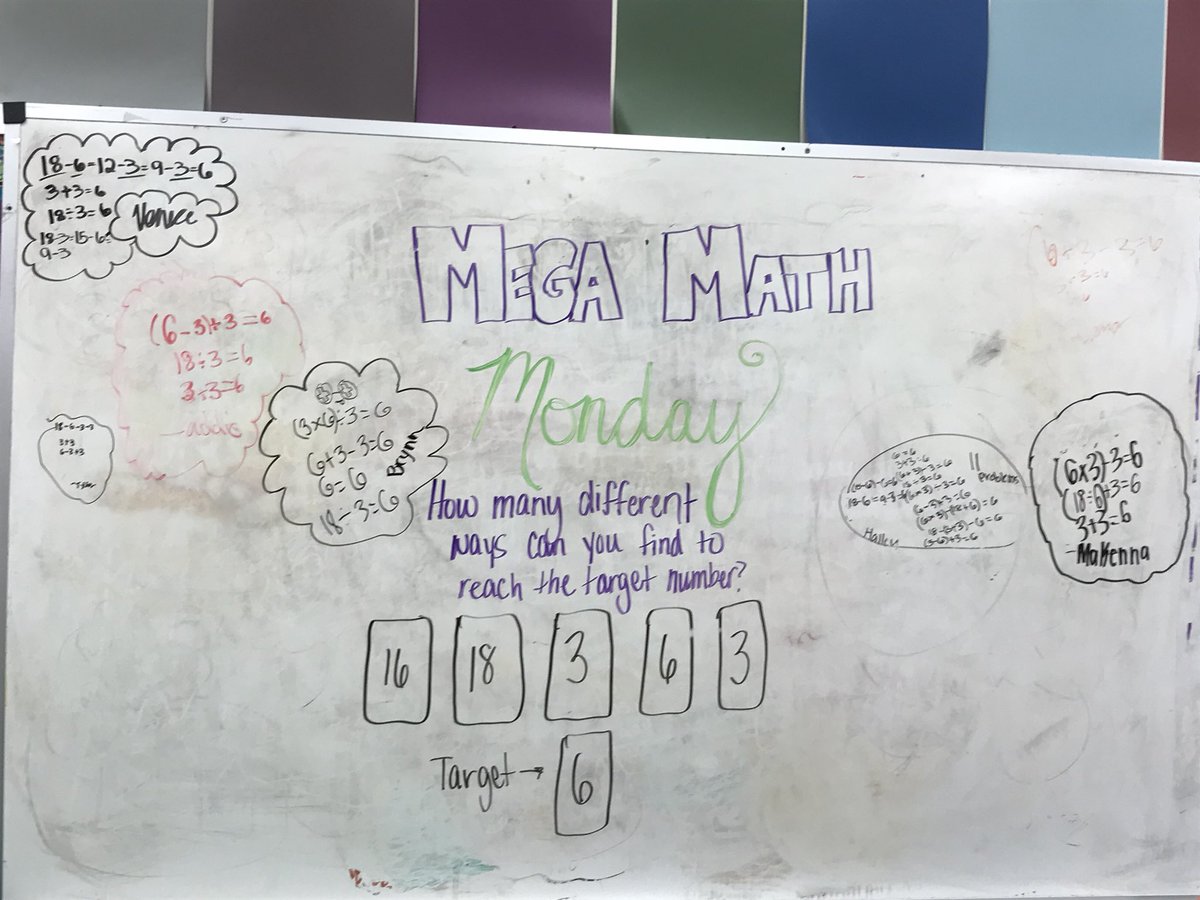 MEGA MATH
Monday
How many different
ways can you find to
reach the target number?
16 18 3 6 3
Target → 6
18-6=12-3=9-3=6
3+3=6
18÷3=6
18-3=15-6=
9-3
(6-3)+3=6
18÷3=6
18-6-3-3
3+3
6-3+3
(3×6)÷3=6
6+3-3=6
6=6
18÷3=6
Brynn
6=6
3+3=6
11
problems
(6-3)+3=6
18-(3+3)-6=6
Hailey
(6×3)÷3=6
(18÷6)+3=6
3+3=6
-MaKenna